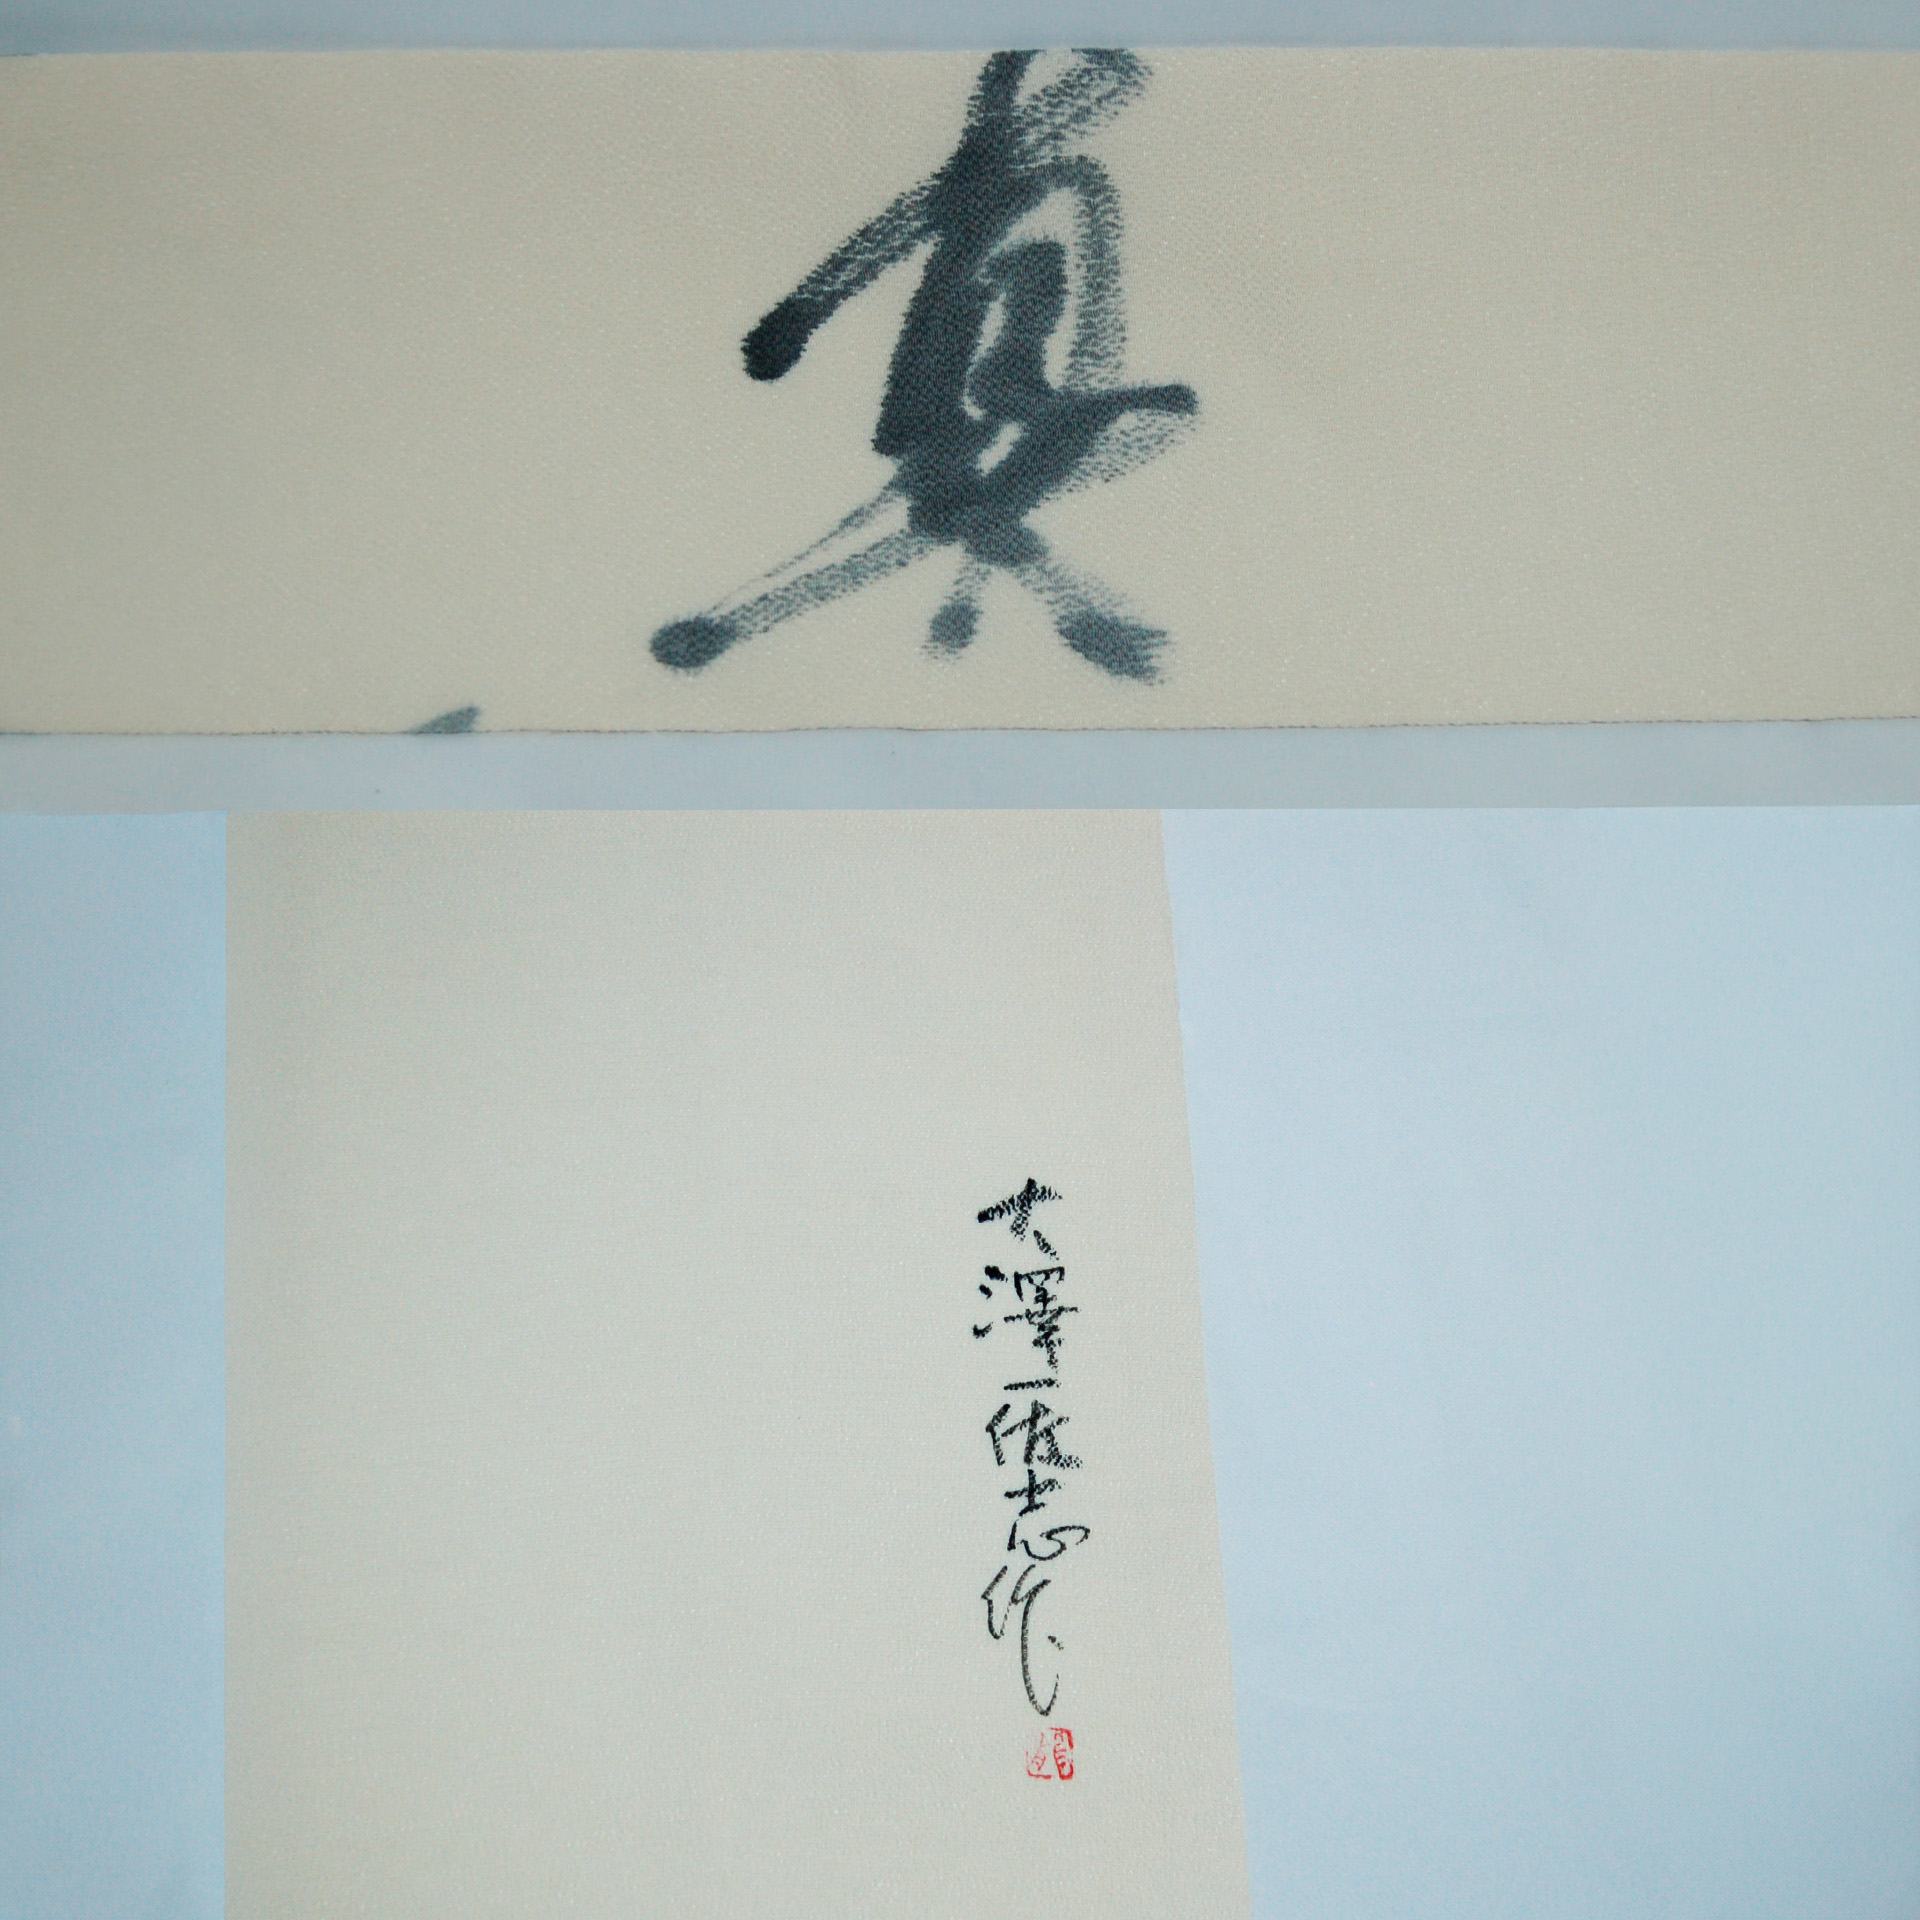 真
大澤一佐志作